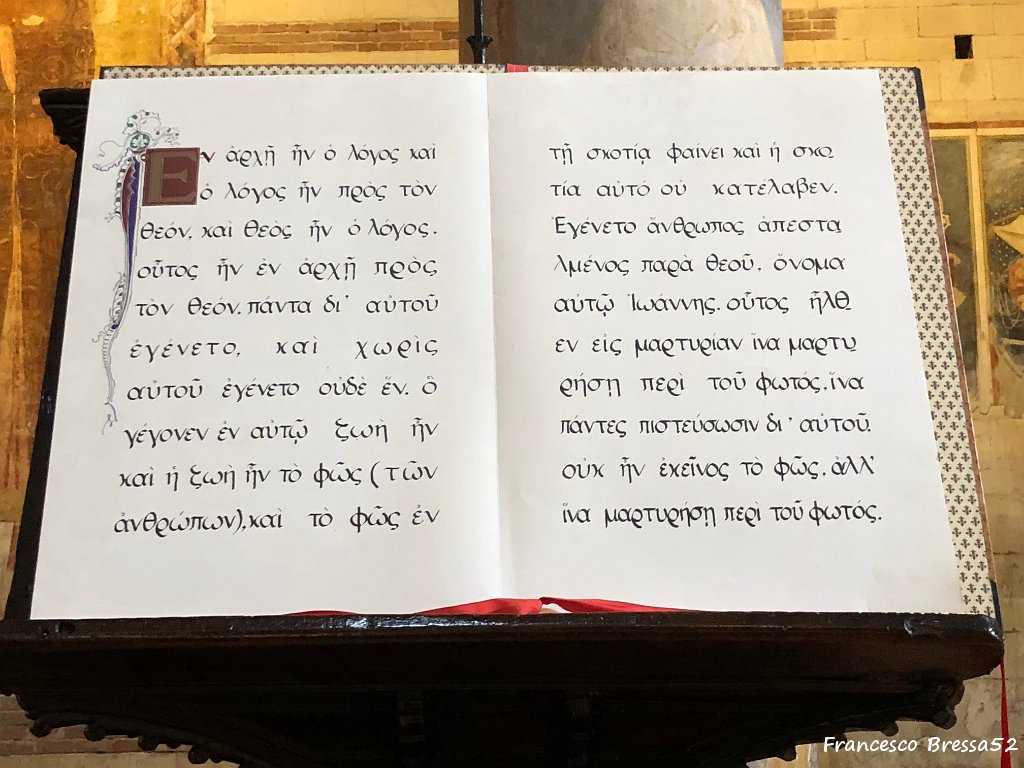 Εν ἀρχῇ ἦν ὁ λόγος καὶ
ὁ λόγος ἦν πρὸς τὸν
θεόν, καὶ θεὸς ἦν ὁ λόγος.
οὗτος ἦν ἐν ἀρχῇ πρὸς
τὸν θεόν. πάντα δι᾽ αὐτοῦ
ἐγένετο, καὶ χωρὶς
αὐτοῦ ἐγένετο οὐδὲ ἕν. ὃ
γέγονεν ἐν αὐτῷ ζωὴ ἦν
καὶ ἡ ζωὴ ἦν τὸ φῶς (τῶν
ἀνθρώπων), καὶ τὸ φῶς ἐν
τῇ σκοτίᾳ φαίνει καὶ ἡ σκο
τία αὐτό οὐ κατέλαβεν.
Ἐγένετο ἄνθρωπος ἀπεστα
λμένος παρὰ θεοῦ. ὄνομα
αὐτῷ Ἰωάννης. οὗτος ἦλθ
εν εἰς μαρτυρίαν ἵνα μαρτυ
ρήσῃ περὶ τοῦ φωτός, ἵνα
πάντες πιστεύσωσιν δι᾽ αὐτοῦ.
οὐκ ἦν ἐκεῖνος τὸ φῶς, ἀλλ᾽
ἵνα μαρτυρήσῃ περὶ τοῦ φωτός.
Francesco Bressa52